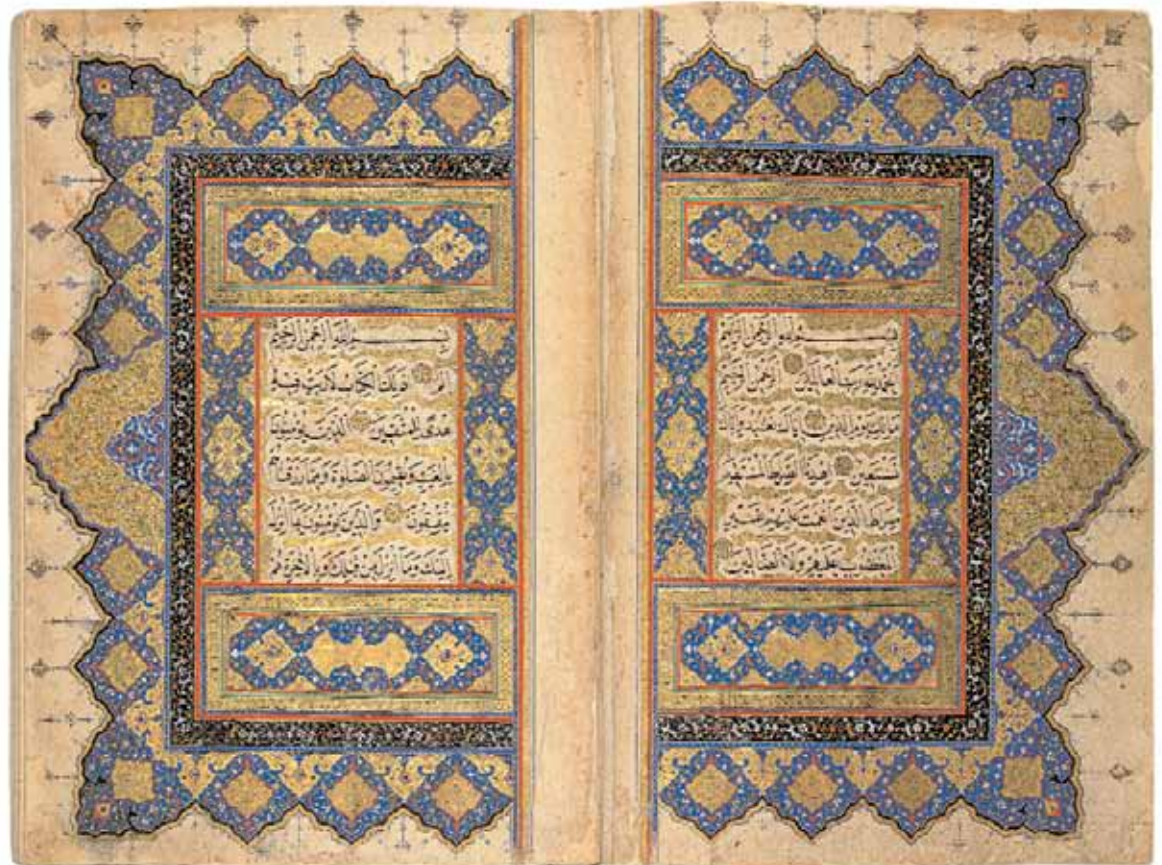 بسم الله الرحمن الرحيم
الحمد لله رب العالمين الرحمن الرحيم
مالك يوم الدين إياك نعبد وإياك
نستعين اهدنا الصراط المستقيم
صراط الذين أنعمت عليهم غير
المغضوب عليهم ولا الضالين
بسم الله الرحمن الرحيم
الم ذلك الكتاب لا ريب فيه
هدى للمتقين الذين يؤمنون
بالغيب ويقيمون الصلوة ومما رزقناهم
ينفقون والذين يؤمنون بما أنزل
إليك وما أنزل من قبلك وبالآخرة هم